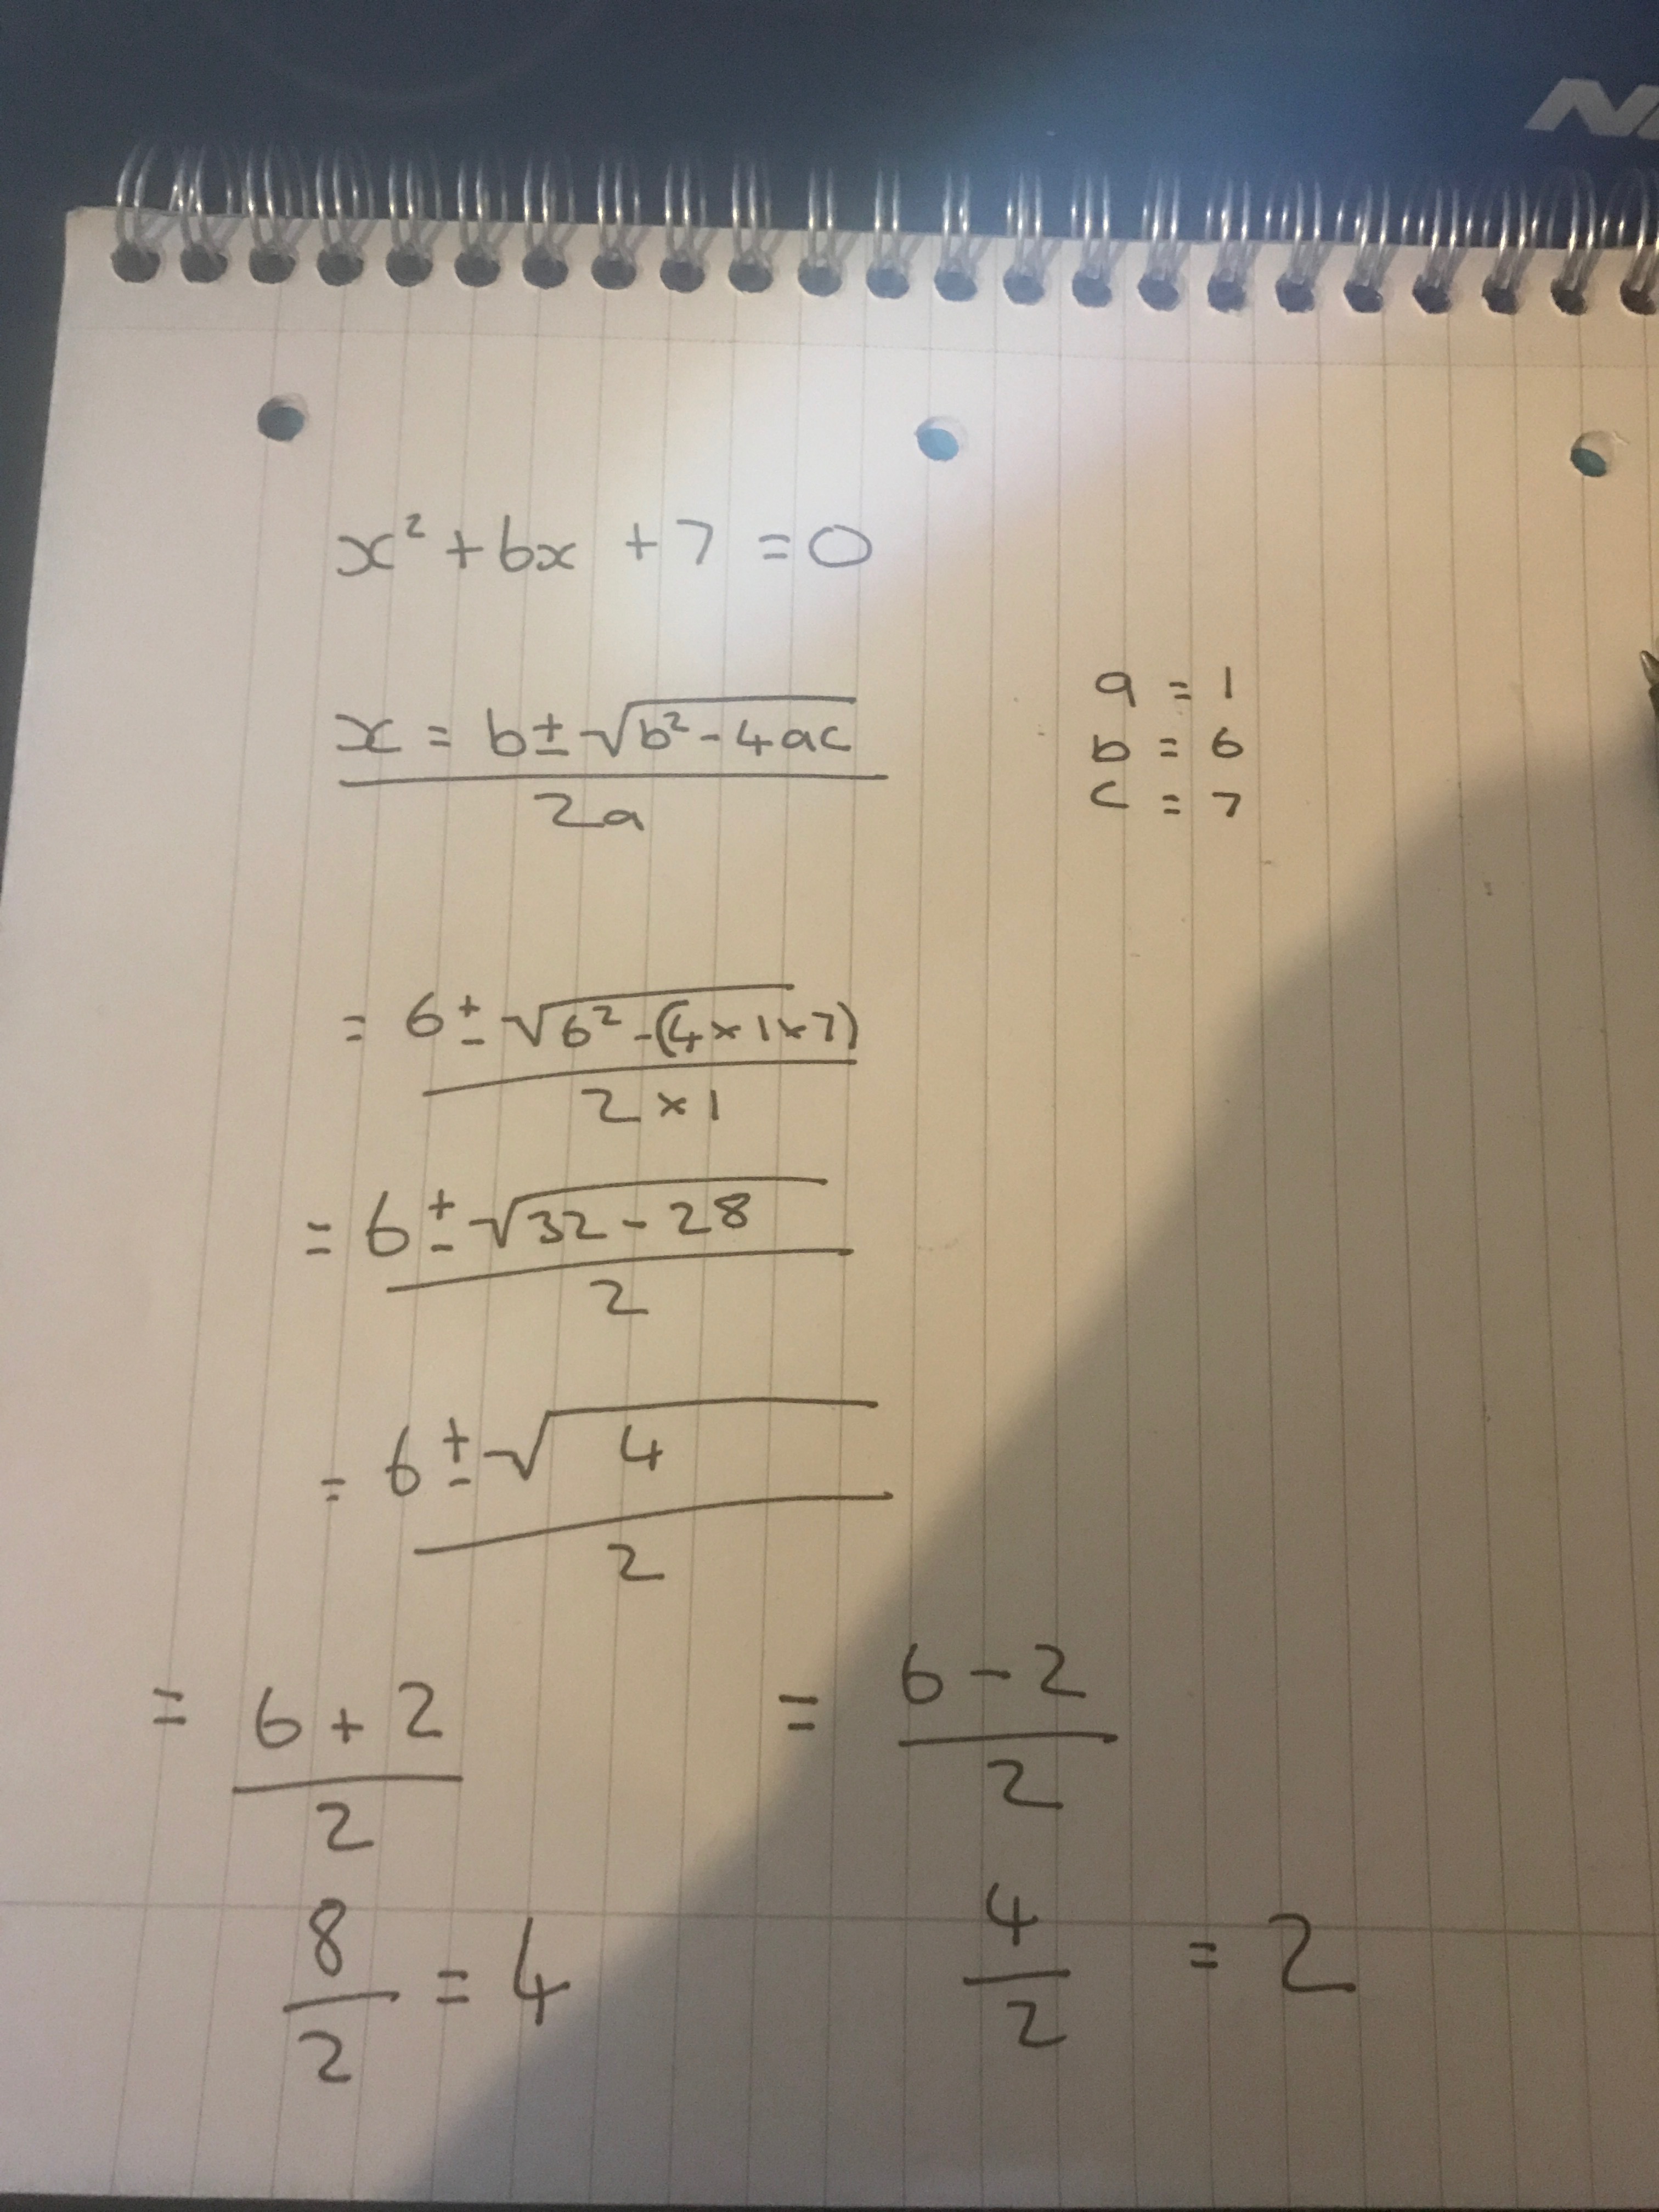 x² + 6x + 7 = 0
x = b ± √b² - 4ac
2a
a = 1
b = 6
c = 7
= 6 ± √6² - (4 × 1 × 7)
2 × 1
= 6 ± √32 - 28
2
= 6 ± √4
2
= 6 + 2
2
= 6 - 2
2
8
2
= 4
4
2
= 2